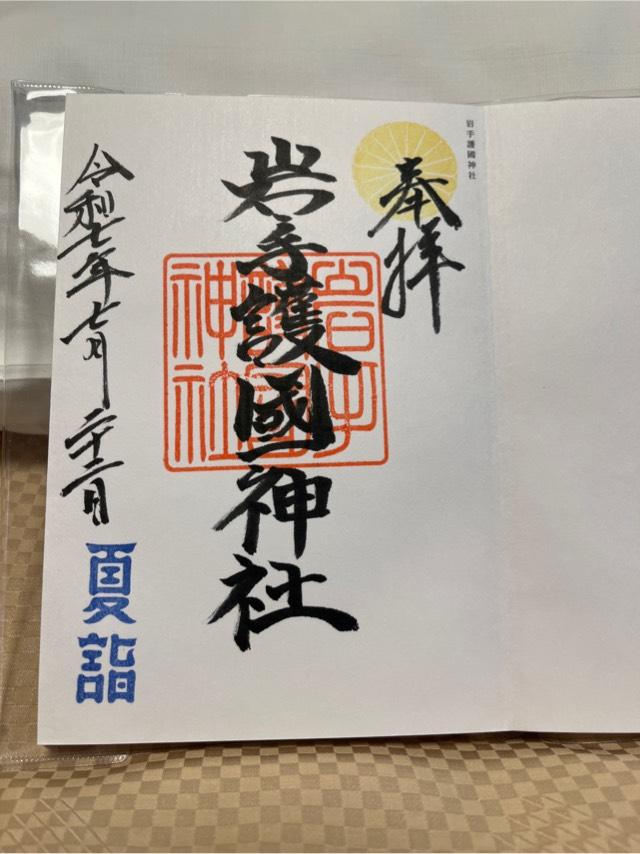 岩手護國神社
奉拝
岩手護國神社
岩手護国神社
令和七年七月二十二日
夏詣